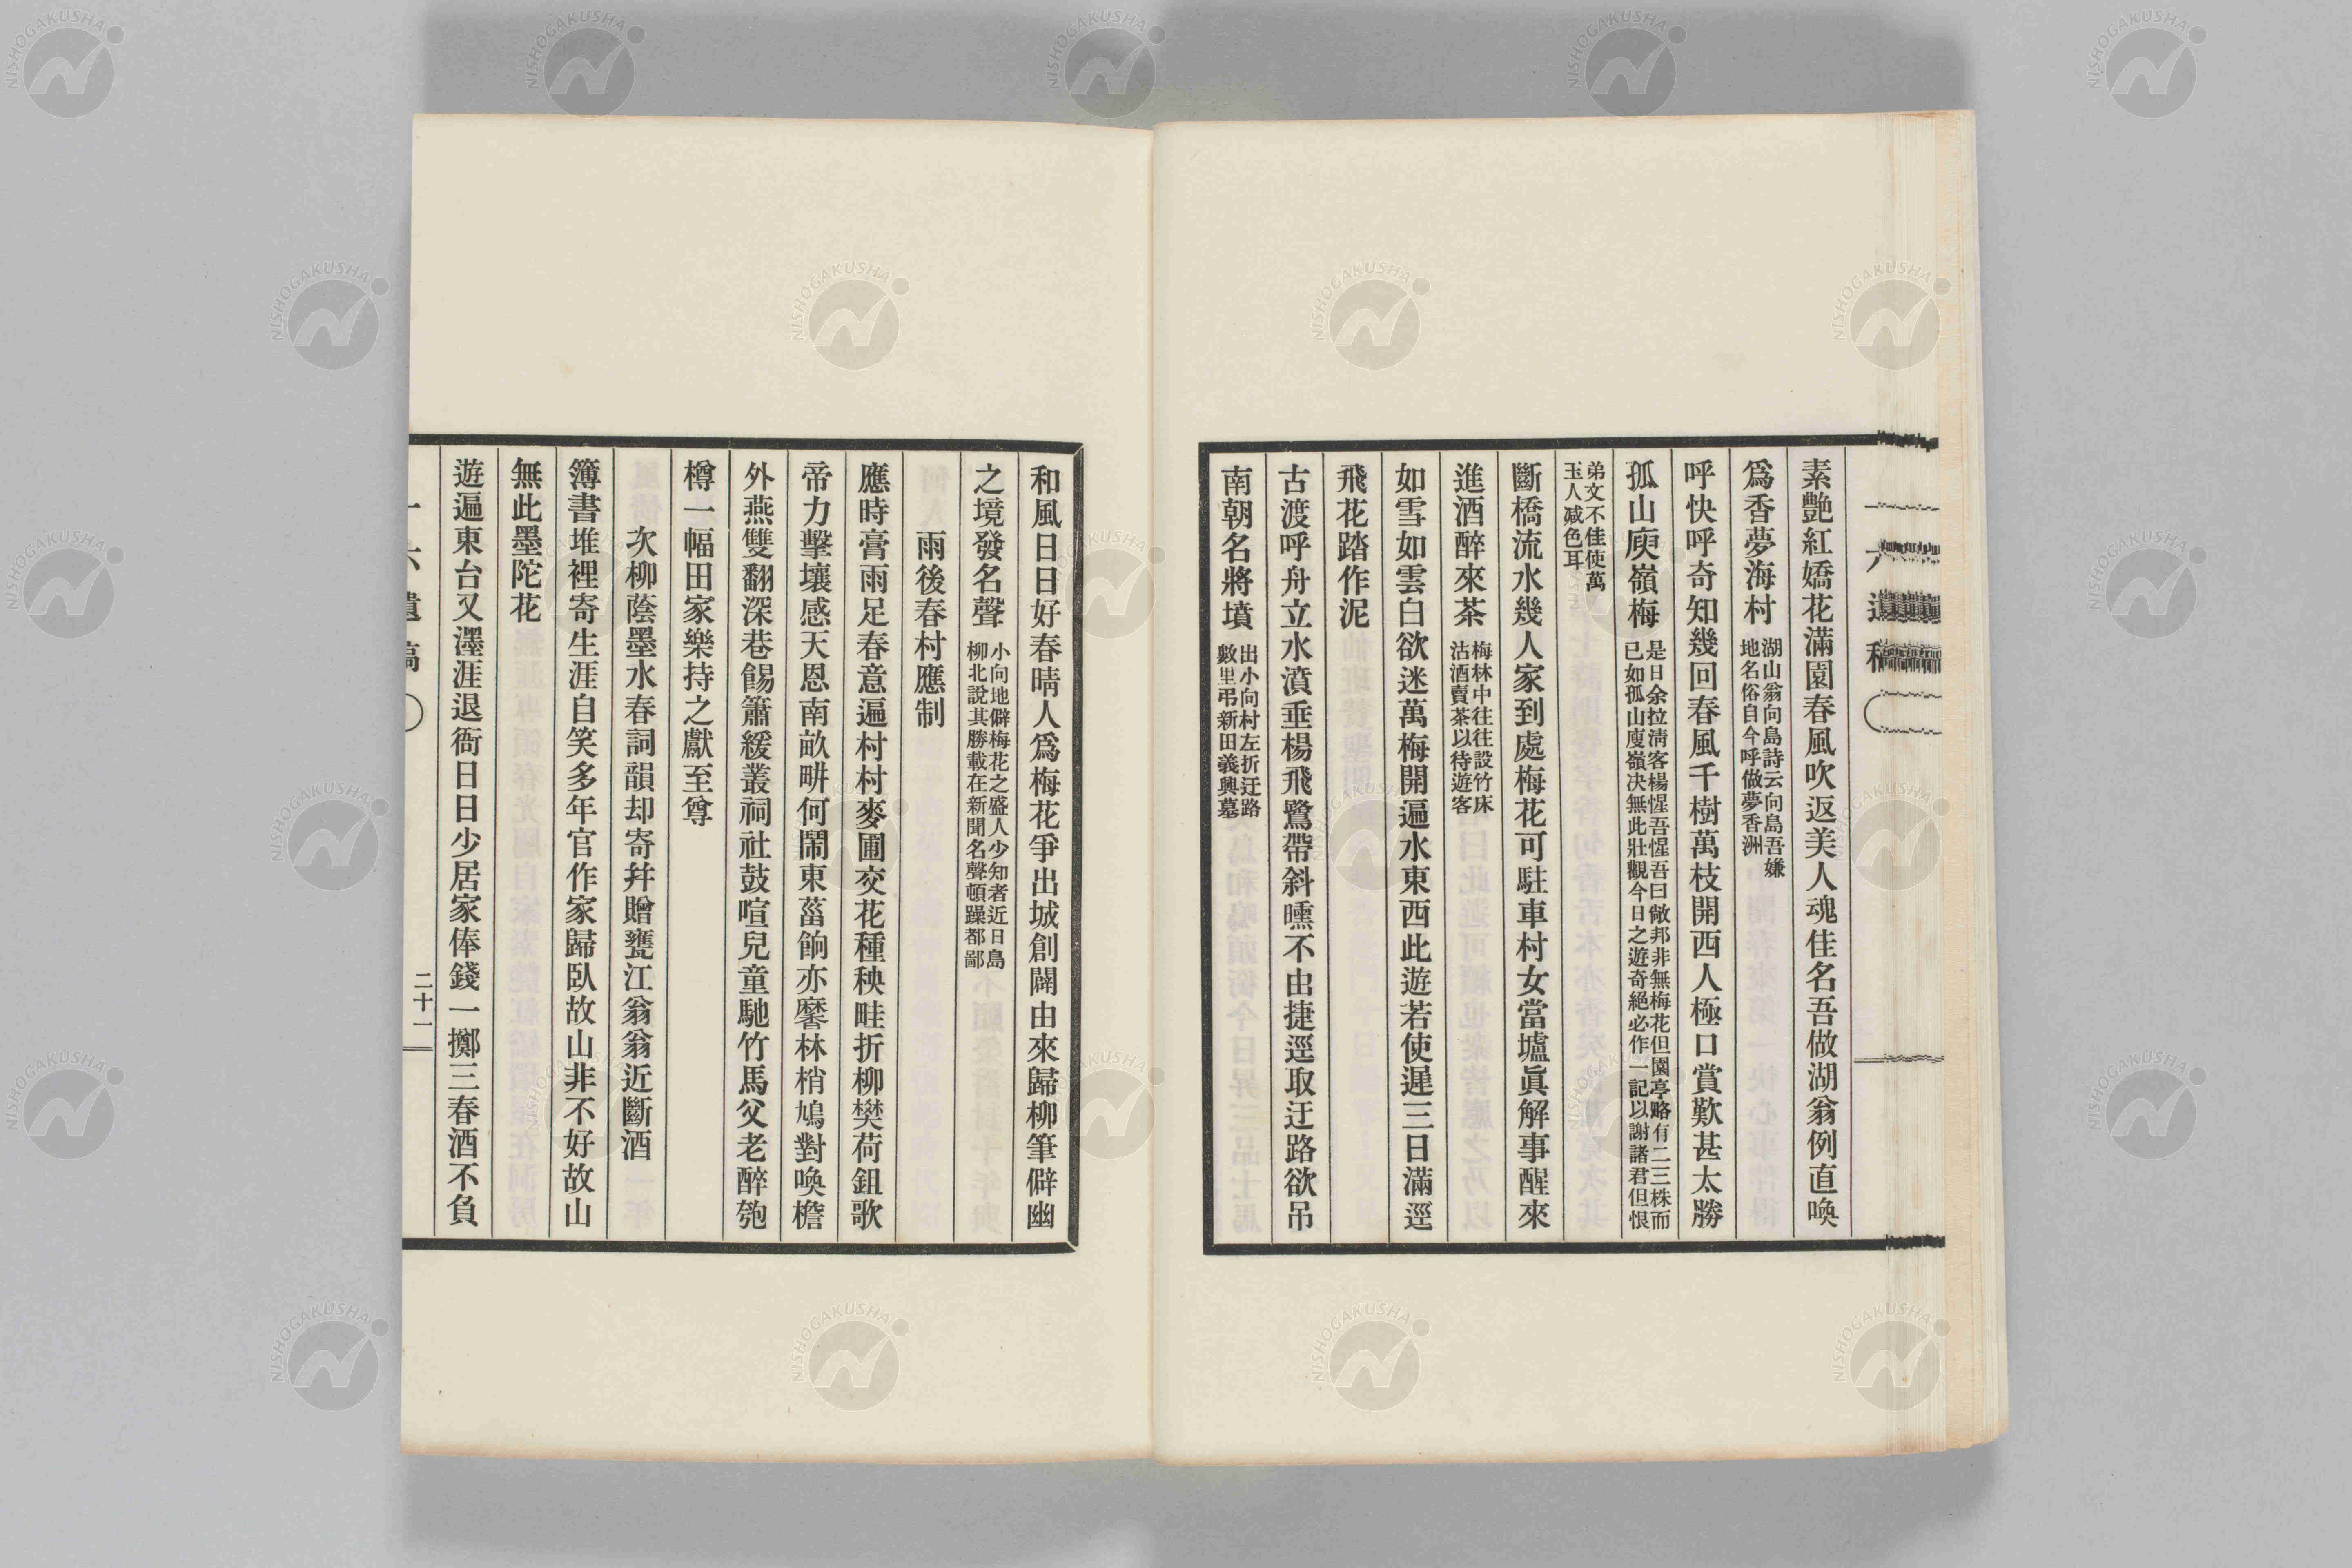 素艷紅嬌花滿園春風吹返美人魂佳名吾做湖翁例直喚
爲香夢海村
湖山翁向島詩云向島吾嫌
地名俗自今呼做夢香洲
呼快呼奇知幾回春風千樹萬枝開西人極口賞歎甚太勝
孤山庾嶺梅
是日余拉淸客楊惺吾惺吾曰敝邦非無梅花但園亭略有二三株而
已如孤山庾嶺决無此壯觀今日之遊奇絕必作一記以謝諸君但恨
弟文不佳使萬
玉人减色耳
斷橋流水幾人家到處梅花可駐車村女當壚眞解事醒來
進酒醉來茶
梅林中往往設竹床
沽酒賣茶以待遊客
如雪如雲白欲迷萬梅開遍水東西此遊若使遲三日滿逕
飛花踏作泥
古渡呼舟立水濆垂楊飛鷺帶斜曛不由捷逕取迂路欲吊
南朝名將墳
出小向村左折迂路
數里弔新田義興墓
和風日日好春晴人爲梅花爭出城創闢由來歸柳筆僻幽
之境發名聲
小向地僻梅花之盛人少知者近日島
柳北說其勝載在新聞名聲頓躁都鄙
雨後春村應制
應時膏雨足春意遍村村麥圃交花種秧畦折柳樊荷鉏歌
帝力擊壤感天恩南畝畊何鬧東菑餉亦麐林梢鳩對喚檐
外燕雙翻深巷餳簫緩叢祠社鼓喧兒童馳竹馬父老醉匏
樽一幅田家樂持之獻至尊
次柳蔭墨水春詞韻却寄幷贈甕江翁翁近斷酒
簿書堆裡寄生涯自笑多年官作家歸臥故山非不好故山
無此墨陀花
遊遍東台又澤涯退衙日日少居家俸錢一擲三春酒不負
二十一